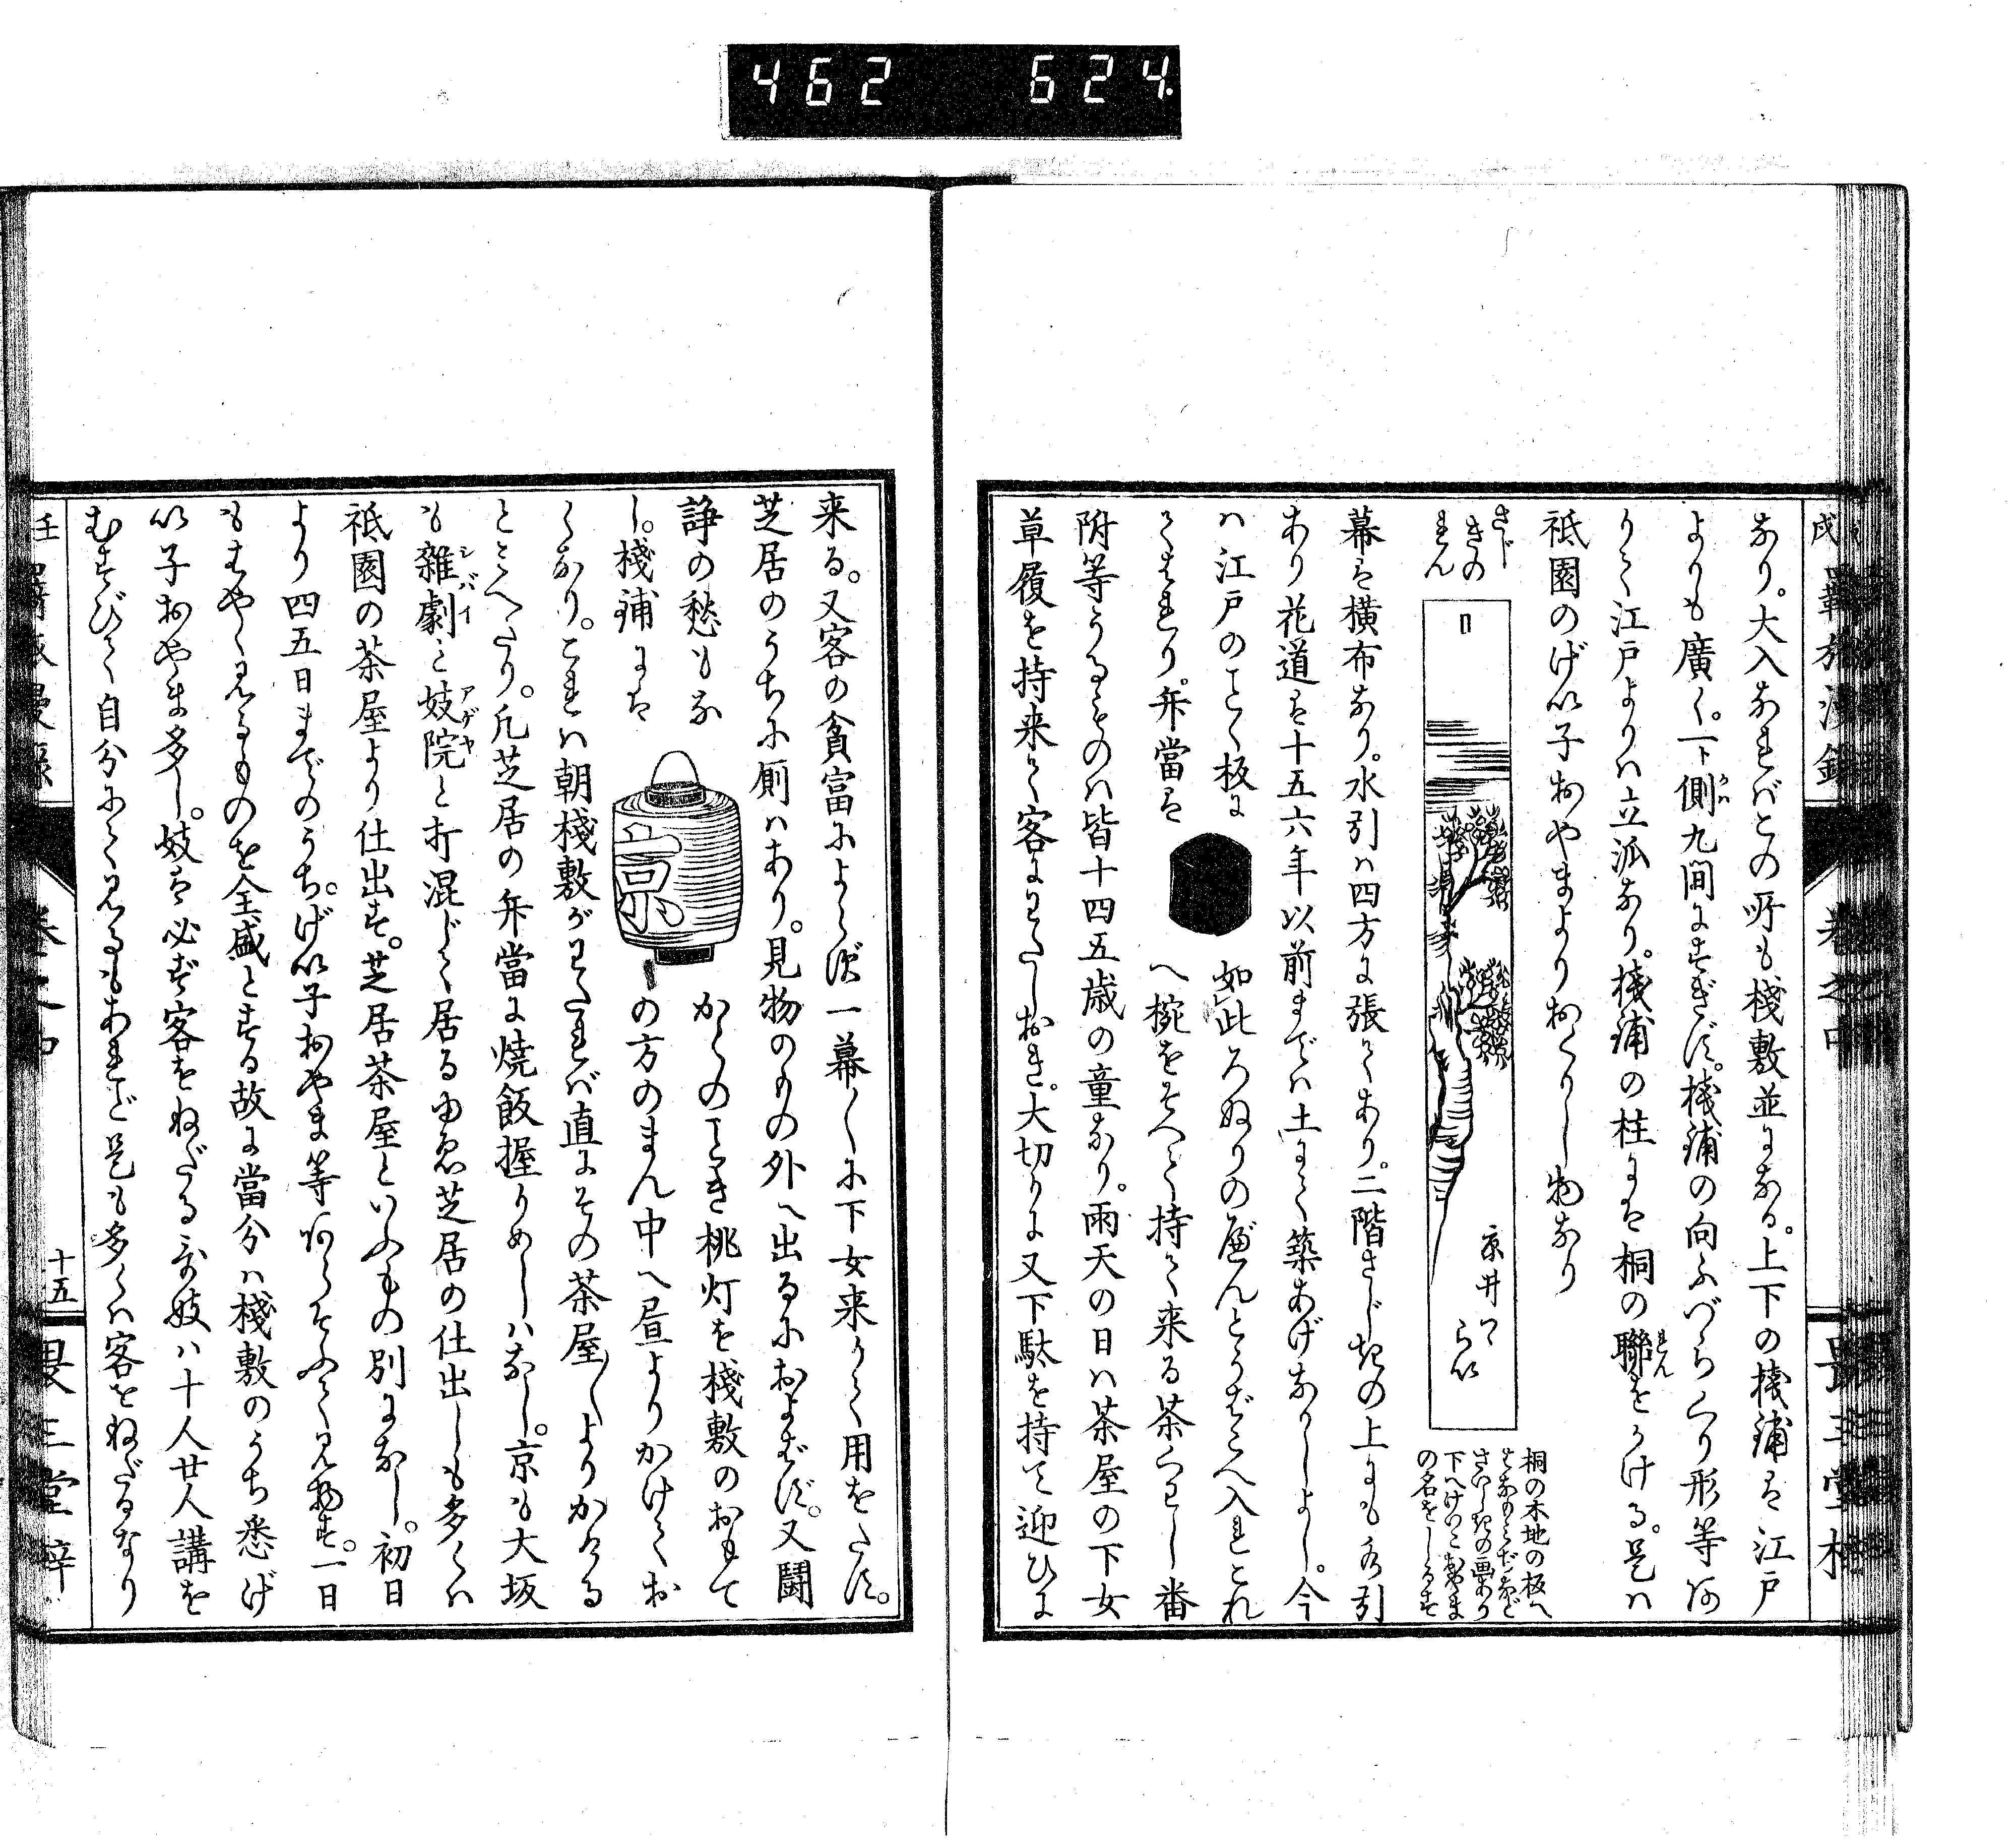 462 624
なり。大入なればこの所も棧敷並になる。上下の棧鋪は江戸
よりも廣く。一ト側九間にすぎず。棧鋪の向ふづらくり形等何
りて江戸よりは立派なり。棧鋪の柱には桐の聯をかける。是は
祇園のげい子おやまよりおくりし物なり
さじ
きの
れん
京井つ
らい
桐の木地の板へ
下へげいこおやま
の名をしるす
幕は横布なり。水引は四方に張てあり。二階さじきの上にも水引
あり花道は十五六年以前までは土にて築あげなりしよし。今
は江戸のごとく板に
如此ろぬりの
てはれり。弁當は
へ椀をそへて持て来る茶くれし番
附等うるものは皆十四五歳の童なり。雨天の日は茶屋の下女
草履を持来て客にわたしおき。大切りに又下駄を持て迎ひに
来る。又客の貧富によらず一幕〱に下女来りて用をたす。
芝居のうちに厠はあり。見物のもの外へ出るにおよばず。又闘
諍の愁もな
かへりのとき桃灯を棧敷のおもて
し。棧鋪には
の方のまん中へ昼よりかけてお
京
くなり。これは朝棧敷がわたれば直にその茶屋〱よりかける
とこへたり。凡芝居の弁當に焼飯握りめしはなし。京も大坂
も雑劇と妓院と打混じて居るゆゑ芝居の仕出しも多くは
シバイ アゲヤ
祇園の茶屋より仕出す。芝居茶屋といふもの別になし。初日
より四五日までのうち。げい子おやま等何らそふて見物す。一日
もはやく見るものを全盛とする故に當分は棧敷のうち悉げ
い子おやま多し。妓は必ず客をねだる哥妓は十人廿人講を
むすびて自分にて見るもあれど是も多くは客をねだるなり
卷之中
十五
畏三堂梓